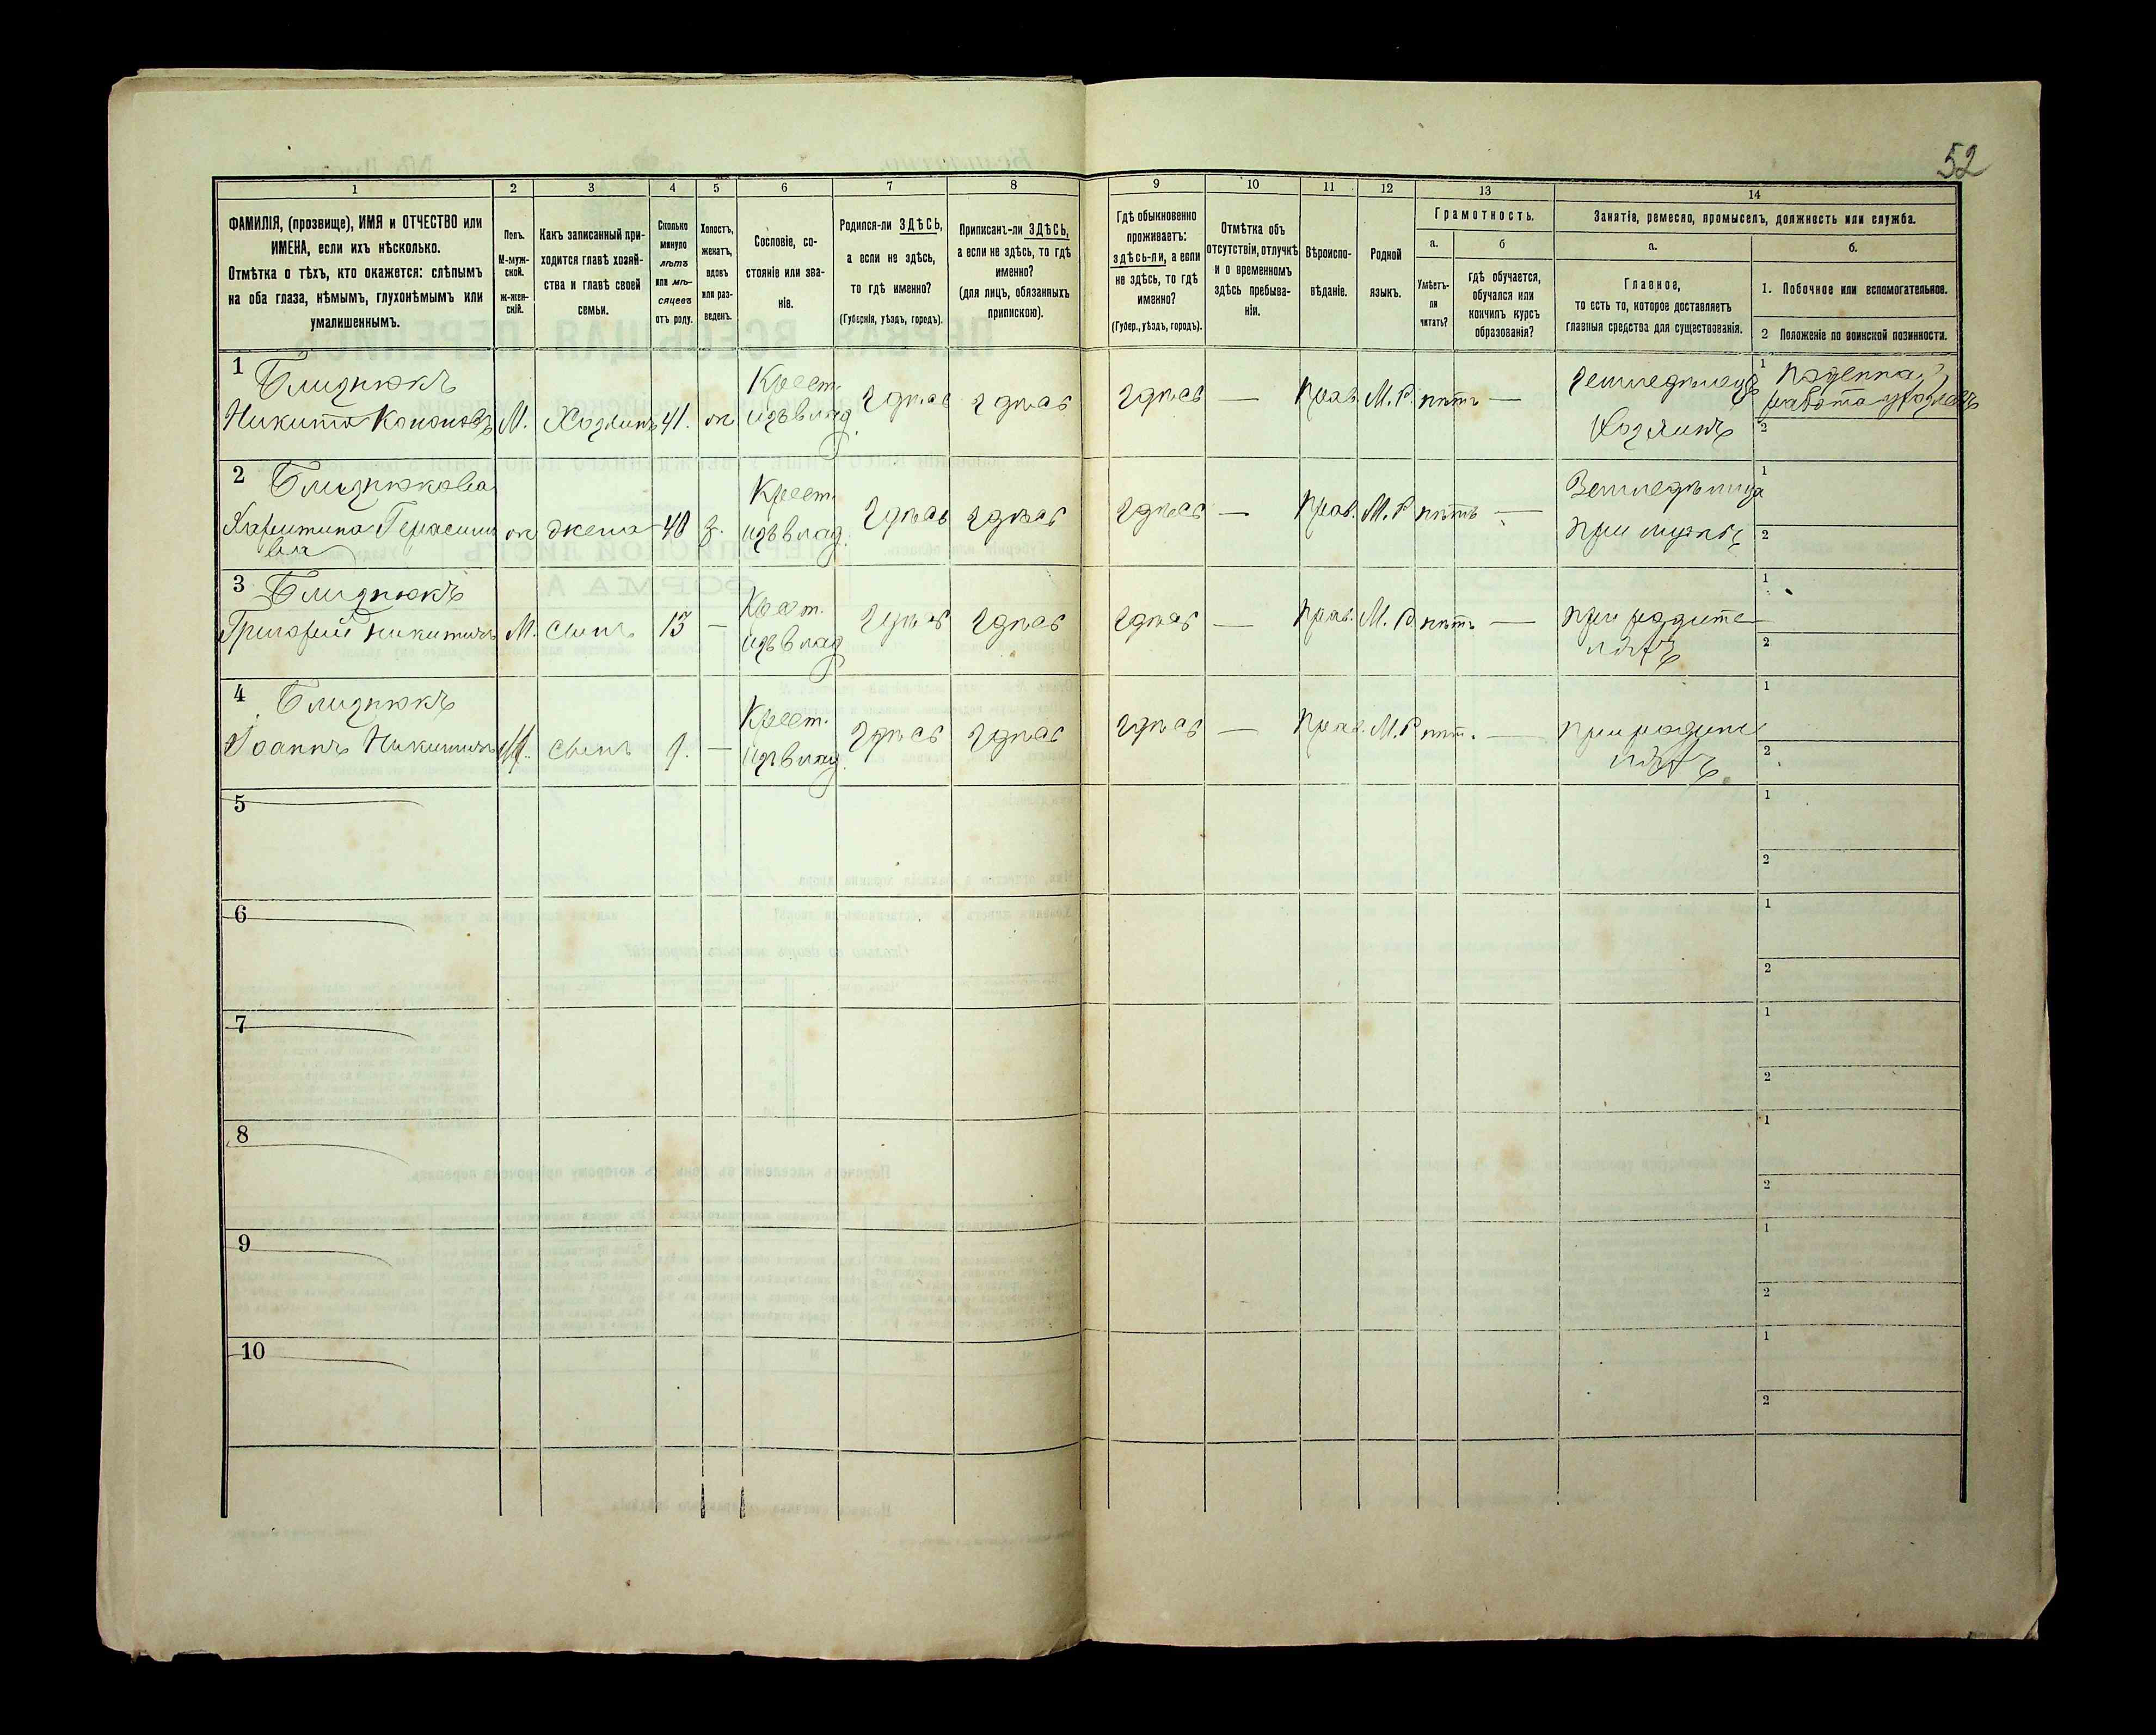 52
1 2 3 4 5 6 7 8 9 10 11 12 13 14
ФАМИЛІЯ, (прозвище), ИМЯ и ОТЧЕСТВО или
ИМЕНА, если ихъ нѣсколько.
Отмѣтка о тѣхъ, кто окажется: слѣпымъ
на оба глаза, нѣмымъ, глухонѣмымъ или
умалишеннымъ.
Полъ.
М-муж-
ской.
ж-жен-
скій.
Какъ записанный при-
ходится главѣ хозяй-
ства и главѣ своей
семьи.
Сколько
минуло
лѣтъ
или мѣ-
сяцевъ
отъ роду.
Холостъ,
женатъ,
вдовъ
или раз-
веденъ.
Сословіе, со-
стояніе или зва-
ніе.
Родился-ли ЗДѢСЬ,
а если не здѣсь,
то гдѣ именно?
(Губернія, уѣздъ, городъ).
Приписанъ-ли ЗДѢСЬ,
а если не здѣсь, то гдѣ
именно?
(для лицъ, обязанныхъ
припискою).
Гдѣ обыкновенно
проживаетъ:
здѣсь-ли, а если
не здѣсь, то гдѣ
именно?
(Губер., уѣздъ, городъ).
Отмѣтка объ
отсутствіи, отлучкѣ
и о временномъ
здѣсь пребыва-
ніи.
Вѣроиспо-
вѣданіе.
Родной
языкъ.
Грамотность.
а.
Умѣетъ-
ли
читать?
б
гдѣ обучается,
обучался или
кончилъ курсъ
образованія?
Занятіе, ремесло, промыселъ, должность или служба.
а.
Главное,
то есть то, которое доставляетъ
главныя средства для существованія.
б.
1. Побочное или вспомогательное.
2 Положеніе по воинской повинности.
1 Близнюкъ Крест. Земледѣлецъ 1 Поденная
Никита Кононовъ М. Хозяинъ 41. ж изъ влад. Здѣсь Здѣсь Здѣсь — Прав. М. Р. нѣтъ — Хозяинъ работа
2
2 Близнюкова Крест. Земледѣлица 1
Харитина Герасимо ж жена 40 з. изъ влад. Здѣсь Здѣсь Здѣсь — Прав. М. Р нѣтъ — при мужѣ 2
вна
3 Близнюкъ Крест. 1
Григорій Никитичъ М. Сынъ 13 — изъ влад Здѣсь Здѣсь Здѣсь — Прав. М. Р нѣтъ — при родите
ляхъ 2
4 Близнюкъ Крест. 1
Іоаннъ Никитичъ М. Сынъ 9. — изъ влад. Здѣсь Здѣсь Здѣсь — Прав. М. Р нѣт. — при родите
ляхъ 2
5 1
2
6 1
2
7 1
2
8 1
2
9 1
2
10 1
2